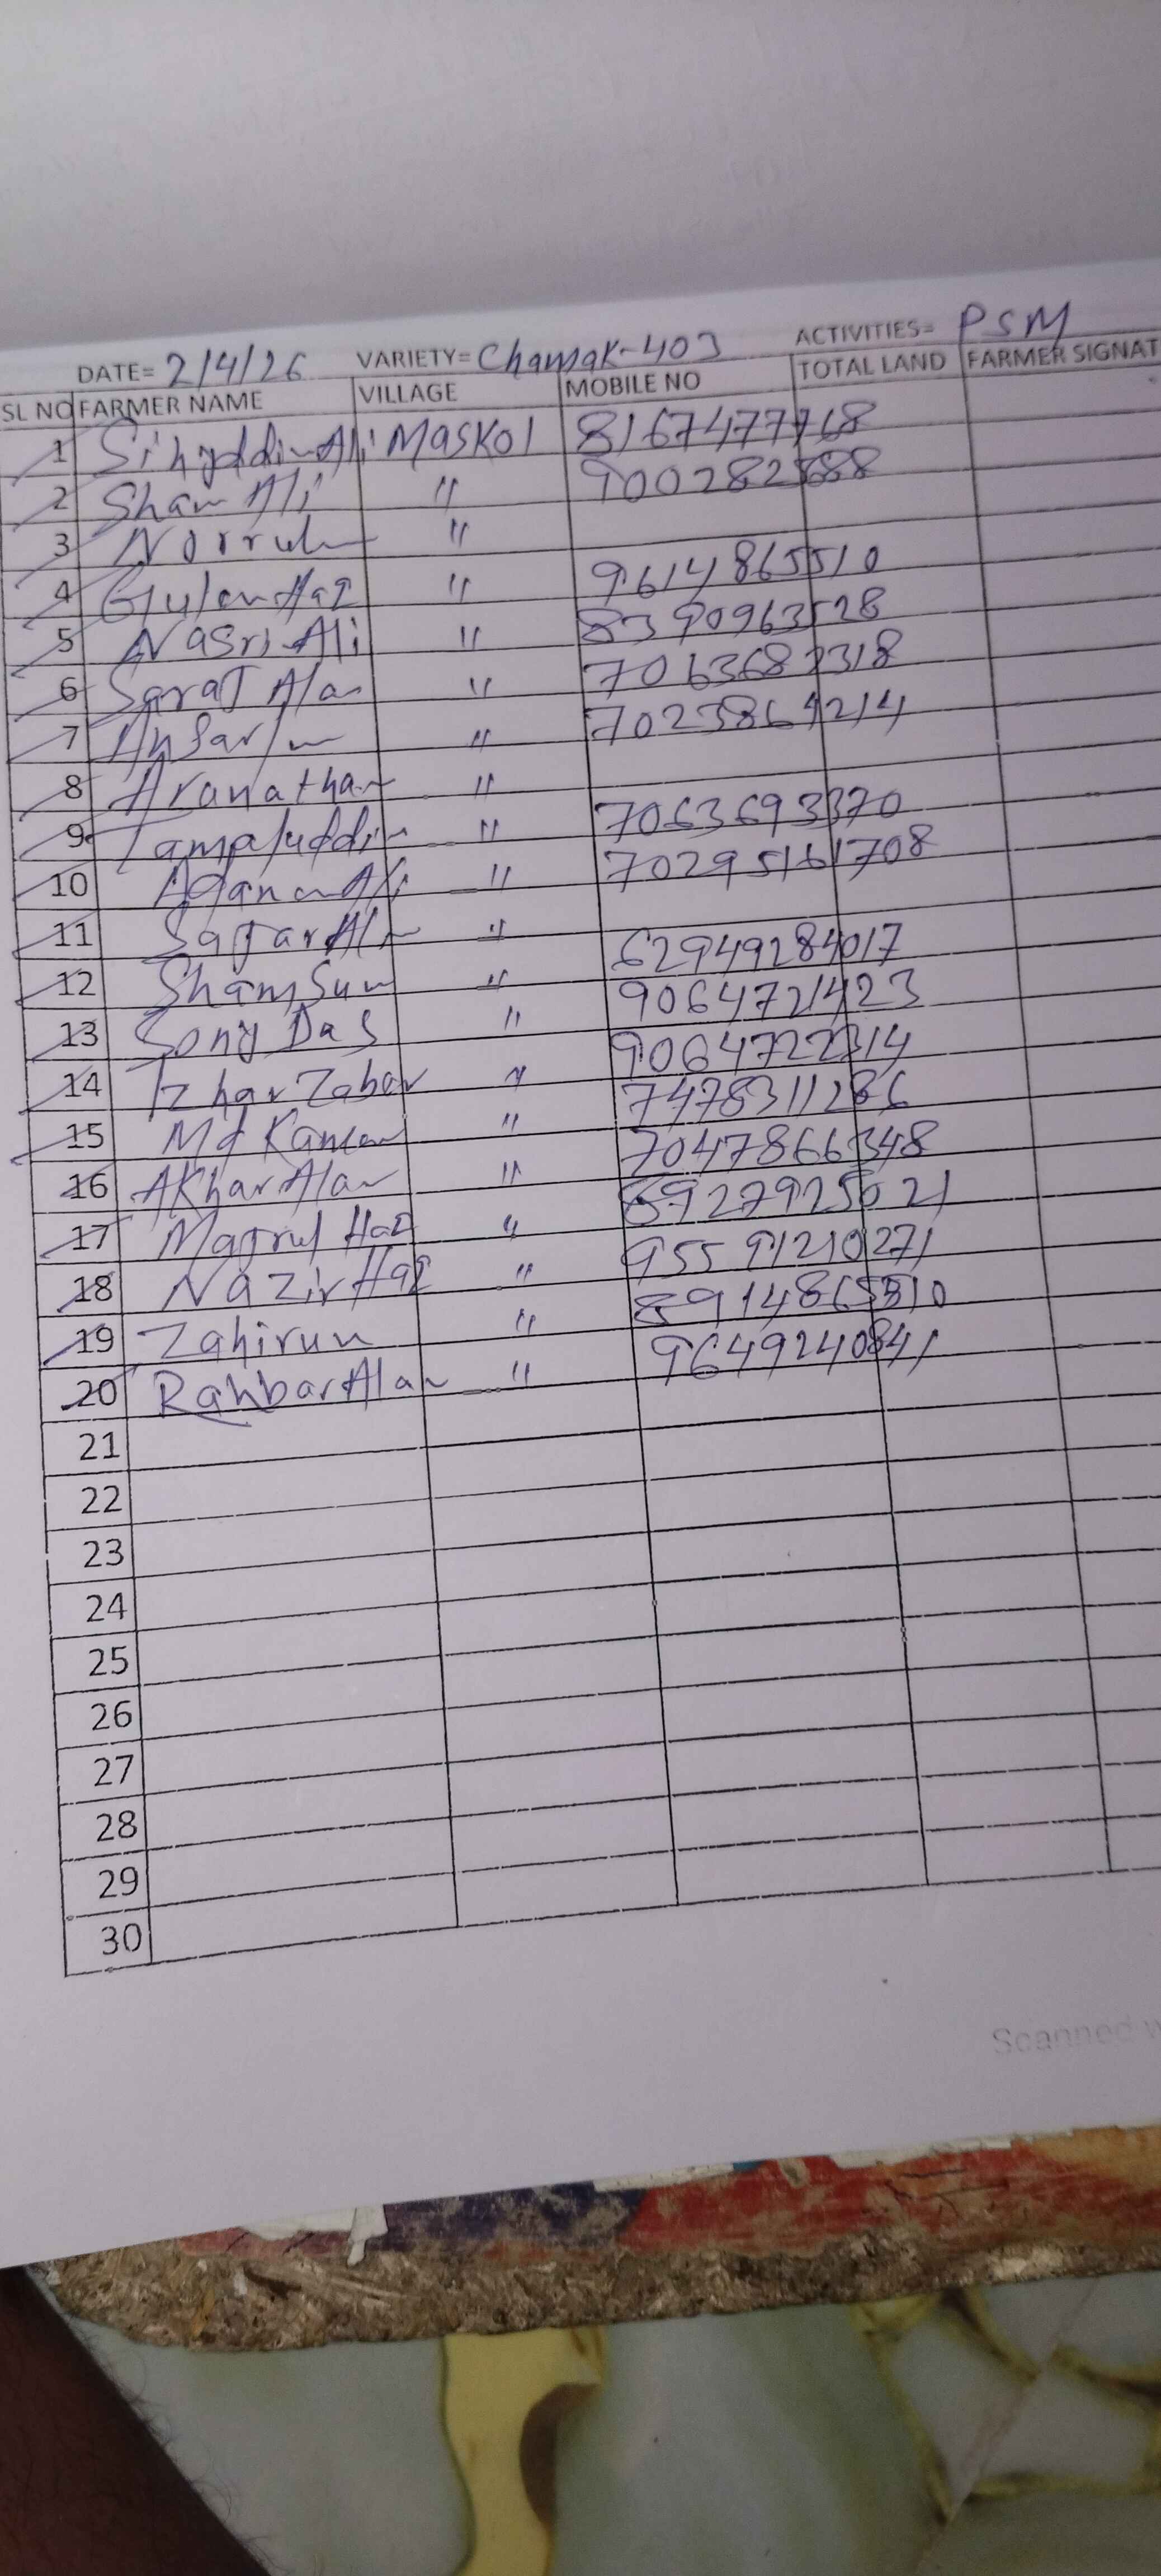 DATE= 2/4/26 VARIETY= Chamak-403 ACTIVITIES= PSM
SL NO FARMER NAME VILLAGE MOBILE NO TOTAL LAND FARMER SIGNAT
1 Sihyddin Ali Maskol 8167477768
2 Sham Ali " 9002825888
3 Norrul "
4 Gulam Haq " 9614865510
5 Nasri Ali " 8390963528
6 Sarat Alam " 7063687318
7 Ansarlu " 7023864214
8 "
9 " 7063693370
10 Ali " 70295161708
11 Sattar Alm "
12 Shamsun " 62949284017
13 Sony Das " 9064721423
14 Izhar Zabar " 9064722314
15 Md " 7478311286
16 Akhar Alam " 7047866348
17 Haq " 8927925021
18 Nazir Haq " 95591210271
19 Zahirun " 8914865510
20 Rahbar Alam " 9649240841
21
22
23
24
25
26
27
28
29
30
Scanned w